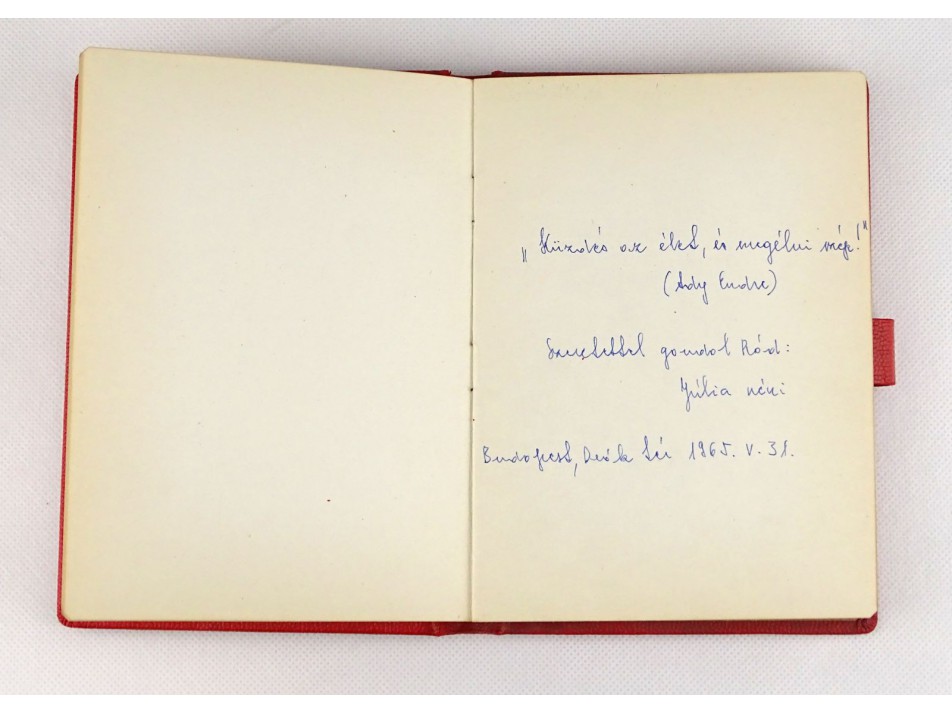 „Küzdés az élet, és megélni szép!"
(Ady Endre)
Szeretettel gondol Rád:
Júlia néni
Budapest, Deák tér 1965. V. 31.